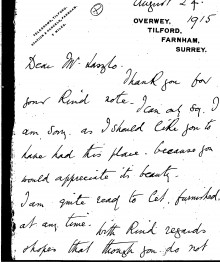 August 24.
1915
OVERWEY,
TILFORD,
FARNHAM,
SURREY.
Dear Mr. Laszlo.
Thank you for
your kind note. I can only say I
am sorry. as I should like you to
have had this place. because you
would appreciate its beauty.
I am quite ready to let, furnished,
at any time. With kind regards
& hopes that though you do not